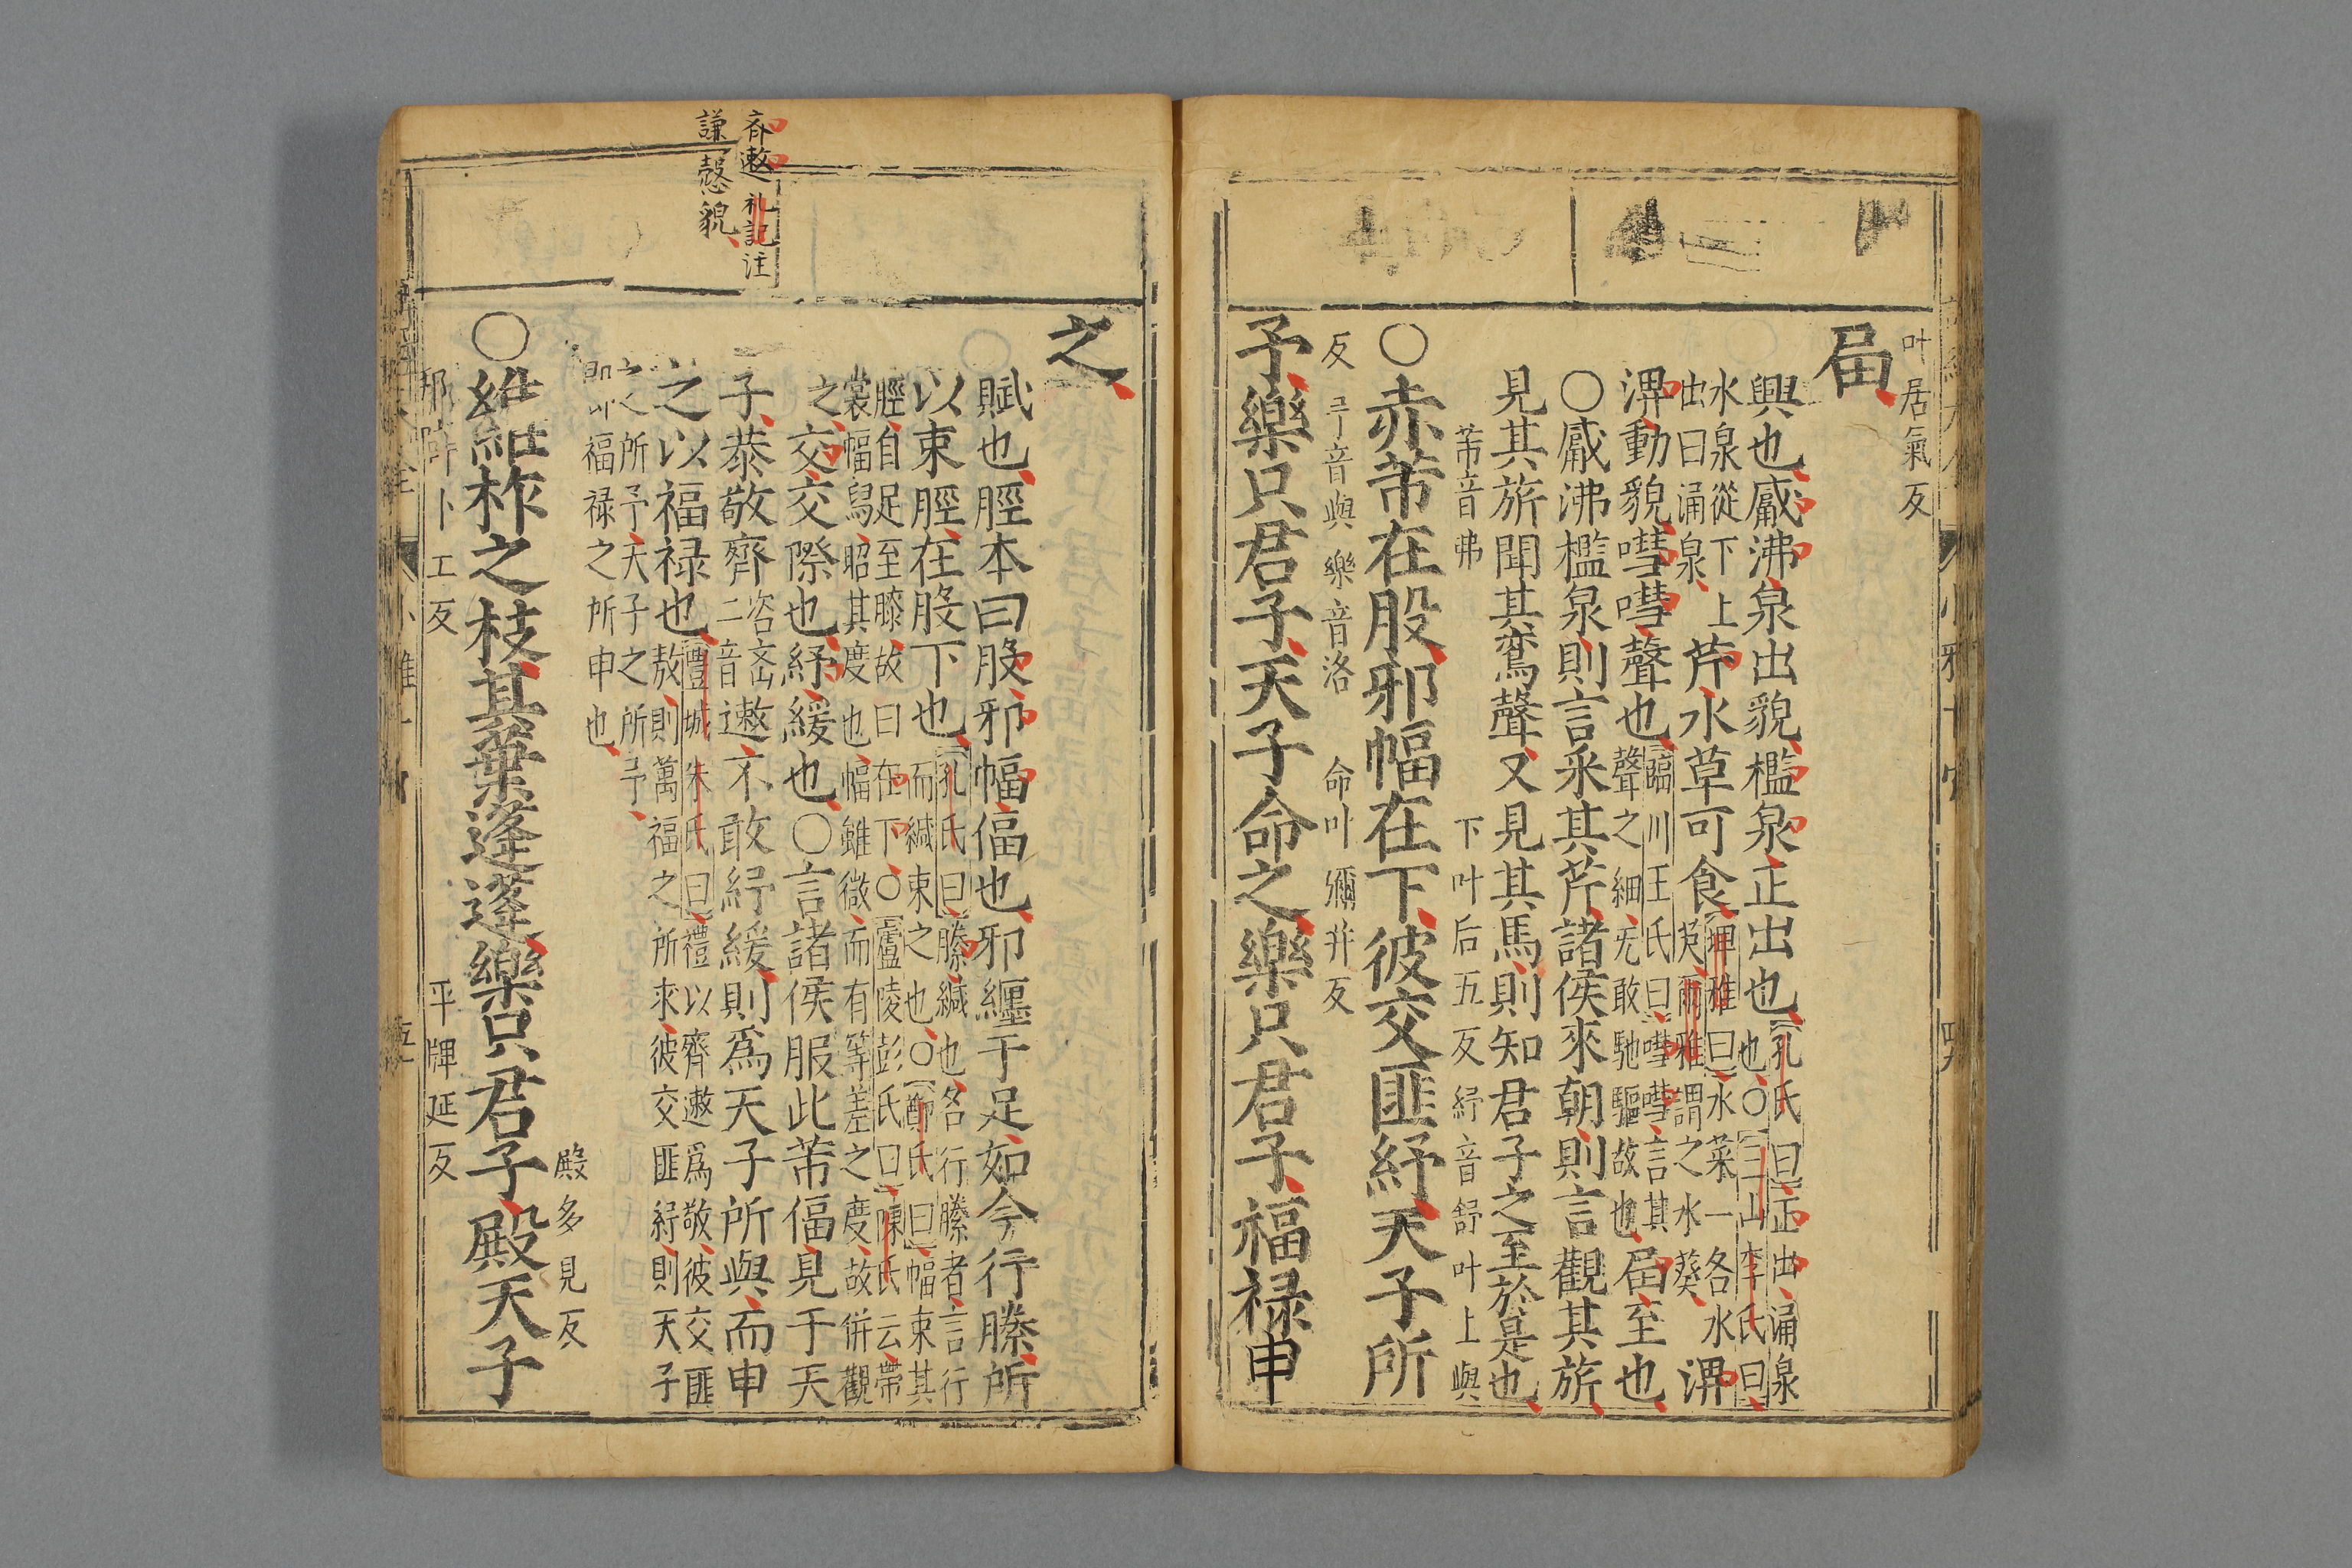 叶居氣反
届
興也觱沸泉出貌檻泉正出也孔氏曰正出涌泉
也○三山李氏曰
水泉從下上
出曰涌泉
芹水草可食埤雅曰水菜一名水
葵爾雅謂之水葵
淠
淠動貌嘒嘒聲也臨川王氏曰嘒嘒言其
聲之細无敢馳驅故也
届至也
○觱沸檻泉則言采其芹諸侯來朝則言觀其旂
見其旂聞其鸞聲又見其馬則知君子之至於是也
芾音弗 下叶后五反紓音舒叶上與
○赤芾在股邪幅在下彼交匪紓天子所
反 予音與 樂音洛 命叶彌并反
予樂只君子天子命之樂只君子福禄申
之
賦也脛本曰股邪幅偪也邪纏于足如今行縢所
以束脛在股下也孔氏曰縢緘也名行縢者言行
而緘束之也○鄭氏曰幅束其
脛自足至膝故曰在下○廬陵彭氏曰陳氏云帶
裳幅舄昭其度也幅雖微而有等差之度故併觀
之
交交際也紓緩也○言諸侯服此芾偪見于天
子恭敬齊咨斎
二音
遬不敢紓緩則爲天子所與而申
之以福禄也豐城朱氏曰禮以齊遬爲敬彼交匪
敖則萬福之所求彼交匪紓則天子
之所予天子之所予
即福禄之所申也
殿多見反
○維柞之枝其葉蓬蓬樂只君子殿天子
邦叶卜工反 平婢延反
齊遬 礼記注
謙慤貌